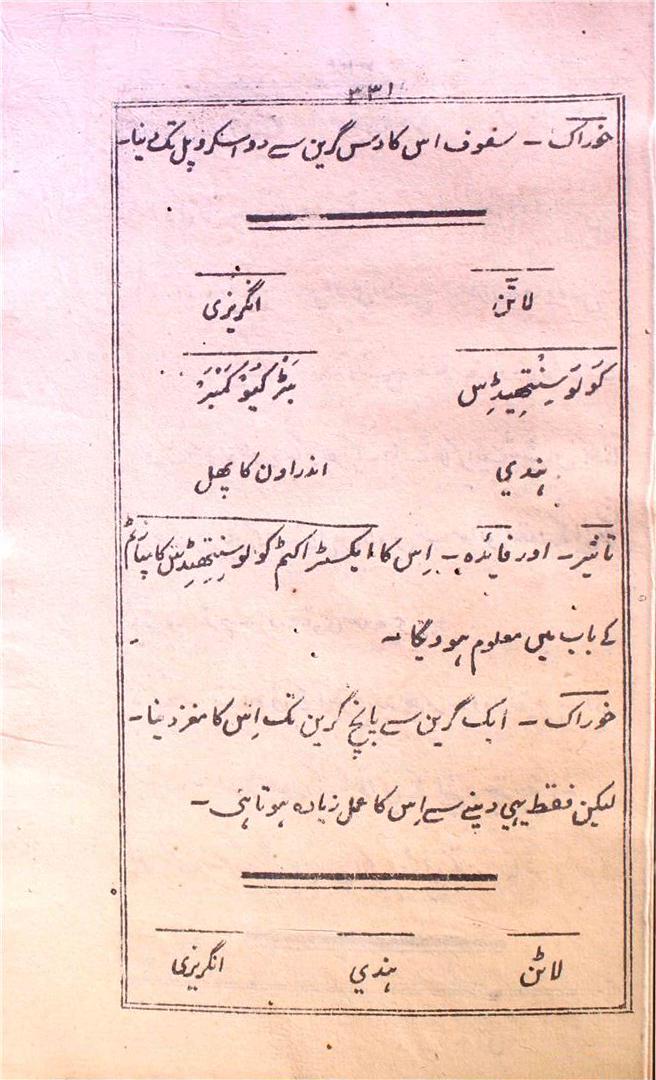 ۳۳۱
خوراک ۔ سفوف اس کا دس گرین سے دو اسکروپل تک دینا ۔
لاٹن انگریزی
کَولَو سِنْتِھیڈِس بِٹَر کیَوکَمْبَرْ
ہندي اندراون کا پھل
تاثیر ۔ اور فایٔدہ ۔ اِس کا ایکسٹراکٹم کولوسِنتِھیڈِس کا پیانٔم
کے باب میں معلوم ہوویگا ۔
خوراک ۔ ایک گرین سے پانچ گرین تک اِس کا مغز دینا ۔
لیکن فقط یہي دینے سے اِس کا عمل زیادہ ہوتا ہئی ۔
لاٹن ہندي انگریزی